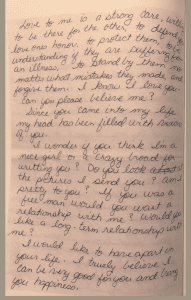 Love to me is a strong care, willing
to be there for the other, to defend
love ones honor. to protect them, to be
understanding if they are suffering from
an illness, to stand by them no
matter what mistakes they made, and
forgive them. I know I love you
can you please believe me?
Since you came into my life
my head has been filled with
of you.
I wonder if you think I'm a
nice girl or a crazy broad for
writing you? Do you look at
the pictures I send you? am I
pretty to you? If you was a
free man would you want a
relationship with me? Would you
like a long-term relationship with
me?
I would like to have apart in
your life. I truely believe I
can be very good for you and bring
you happiness.